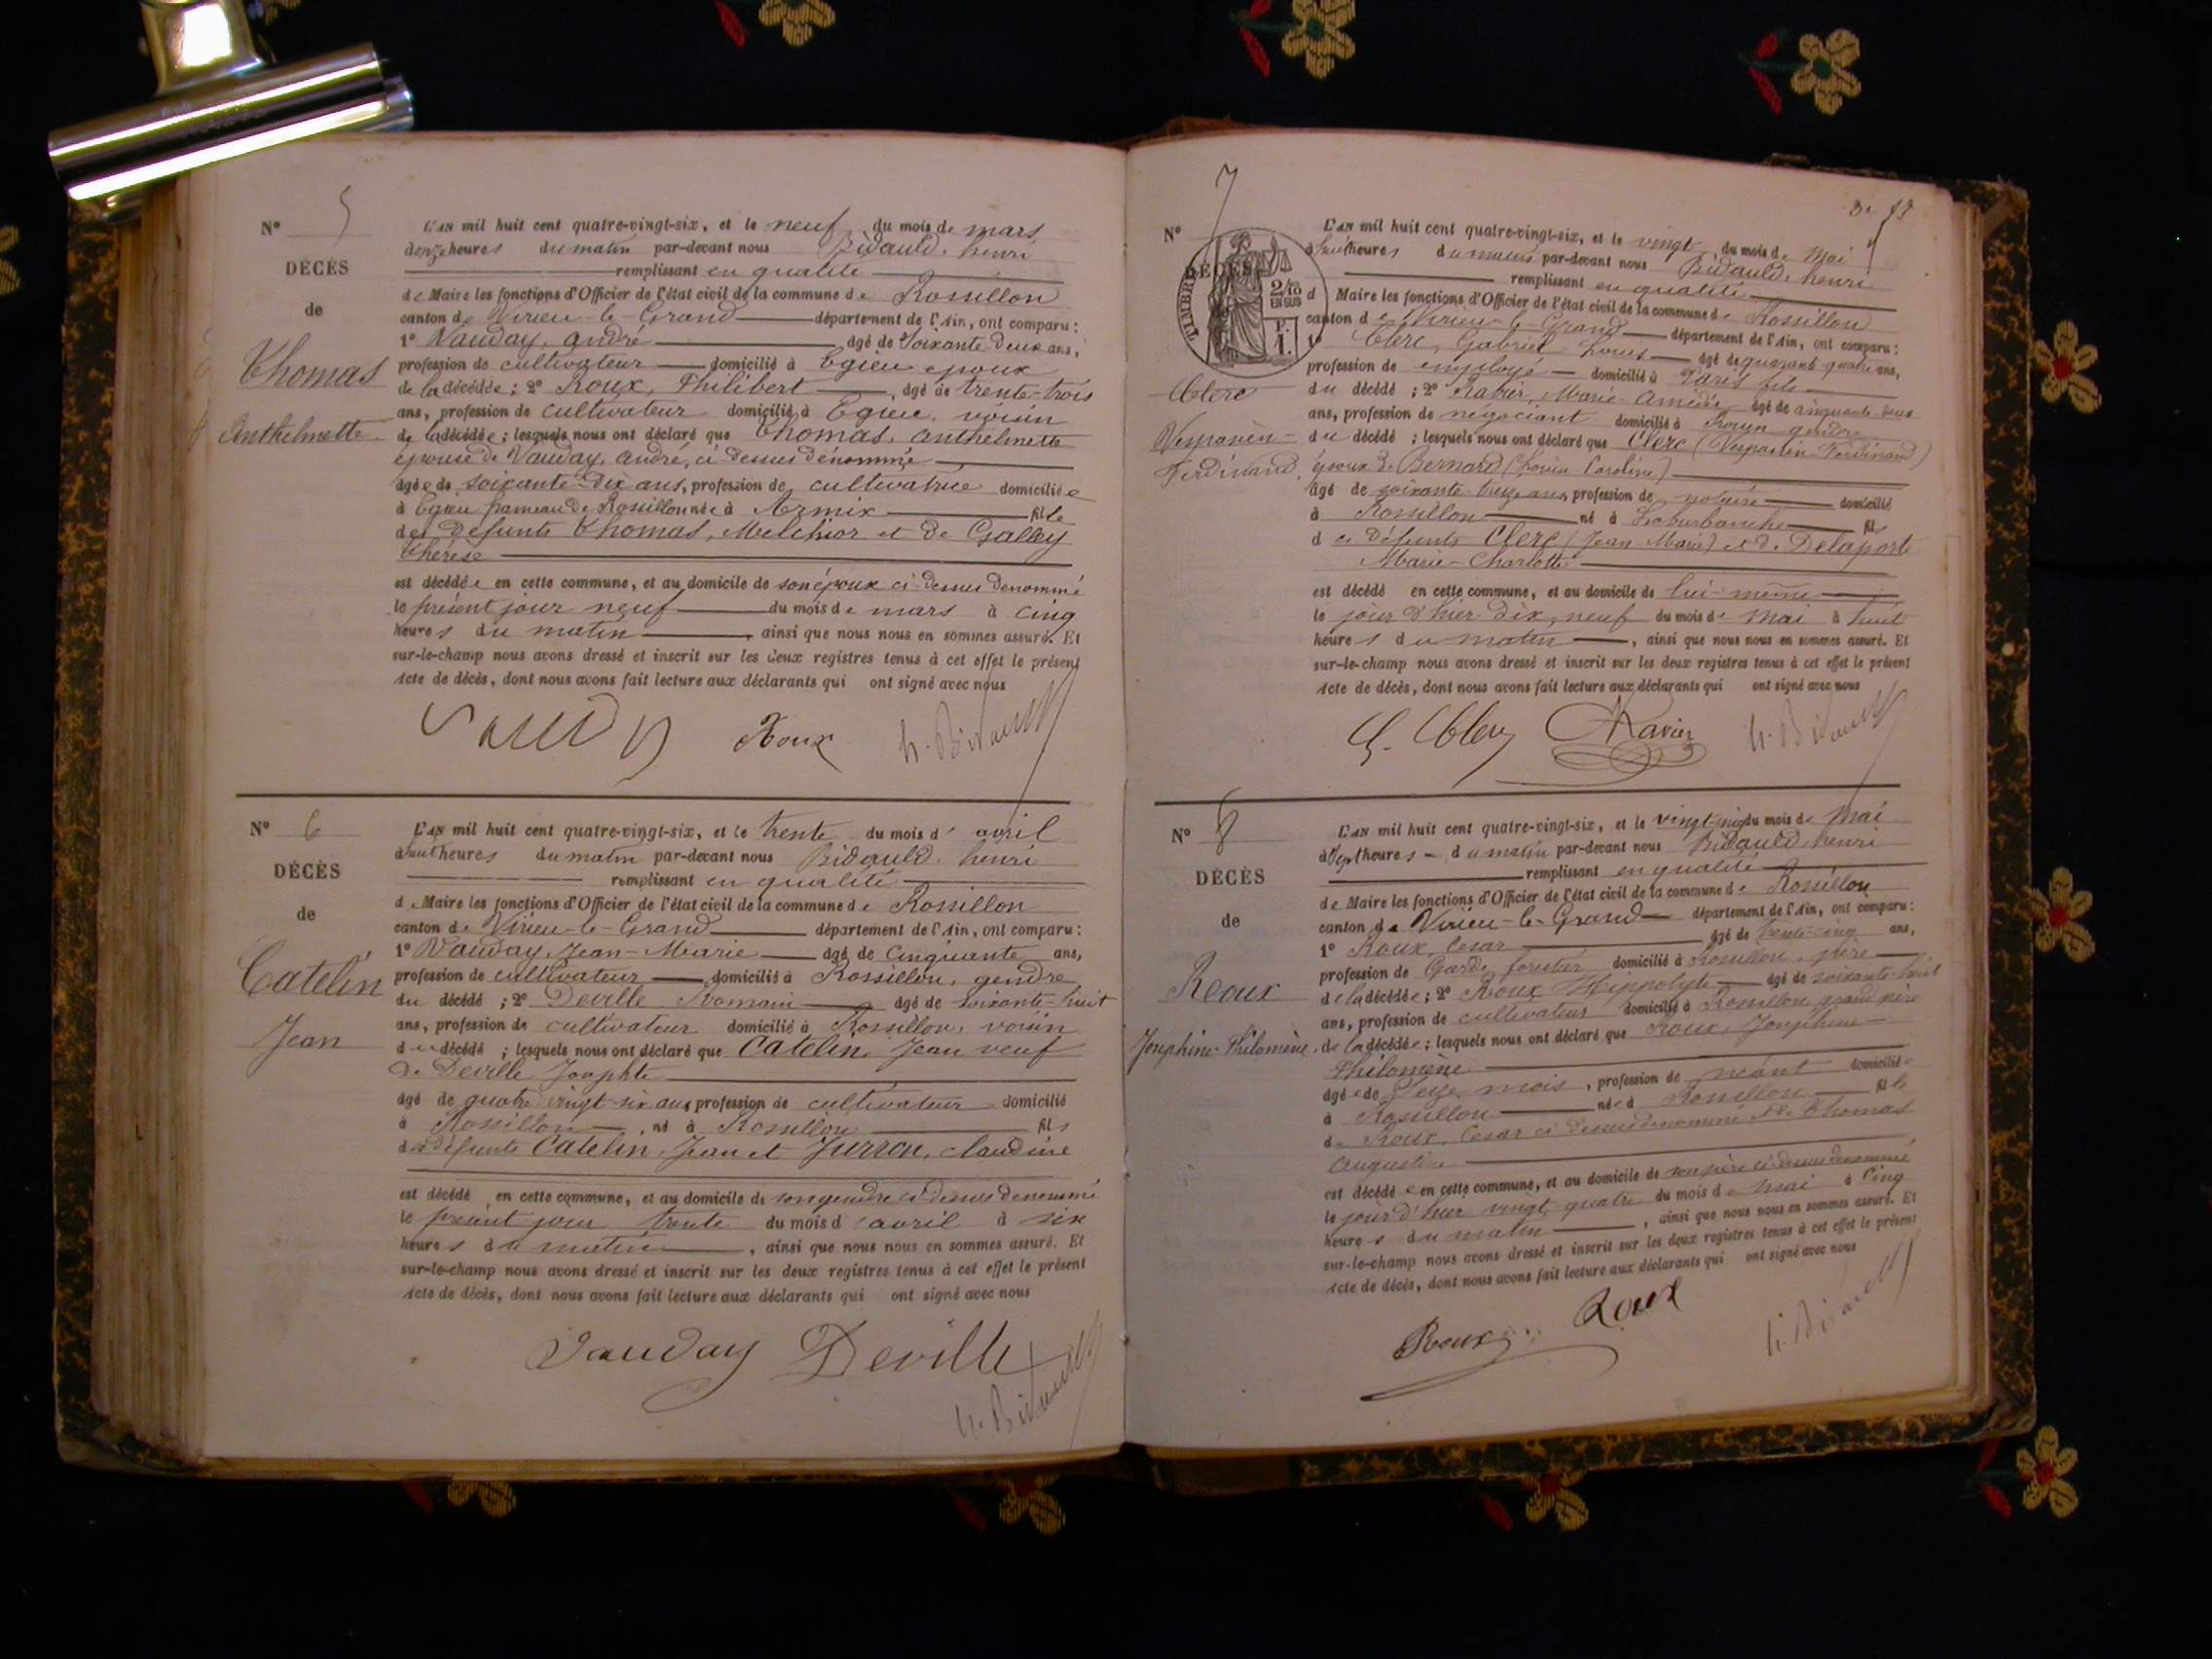 N° 5
DÉCÈS
de
Thomas
Anthelmette
L'AN mil huit cent quatre-vingt-six, et le neuf du mois de mars
à onze heures du matin par-devant nous Bidauld, henri
remplissant en qualité
de Maire les fonctions d'Officier de l'état civil de la commune de Rossillon
canton de Virieu-le-Grand département de l'Ain, ont comparu :
1° Vauday, andré âgé de Soixante-deux ans,
profession de cultivateur domicilié à Egieu époux
de la décédée ; 2° Roux, Philibert, âgé de trente-trois
ans, profession de cultivateur domicilié à Egieu, voisin
de la décédée ; lesquels nous ont déclaré que Thomas, anthelmette
épouse de Vauday, andré, ci-dessus dénommé
âgée de soixante-dix ans, profession de cultivatrice domiciliée
à Egieu hameau de Rossillon née à Armix fille
des défunts Thomas, Melchior et de Galley
Thérèse
est décédée en cette commune, et au domicile de son époux ci-dessus dénommé
le présent jour neuf du mois de mars à cinq
heures du matin, ainsi que nous nous en sommes assuré. Et
sur-le-champ nous avons dressé et inscrit sur les deux registres tenus à cet effet le présent
Acte de décès, dont nous avons fait lecture aux déclarants qui ont signé avec nous
Roux h. Bidauld
N° 6
DÉCÈS
de
Catelin
Jean
L'AN mil huit cent quatre-vingt-six, et le trente du mois d'avril
à huit heures du matin par-devant nous Bidauld, henri
remplissant en qualité
de Maire les fonctions d'Officier de l'état civil de la commune de Rossillon
canton de Virieu-le-Grand département de l'Ain, ont comparu :
1° Vauday, Jean-Marie âgé de Cinquante ans,
profession de cultivateur domicilié à Rossillon, gendre
du décédé ; 2° Deville Romain âgé de soixante-huit
ans, profession de cultivateur domicilié à Rossillon, voisin
du décédé ; lesquels nous ont déclaré que Catelin, Jean veuf
de Deville Josephte
âgé de quatre-vingt-six ans profession de cultivateur domicilié
à Rossillon, né à Rossillon fils
des défunts Catelin, Jean et Jurron, claudine
est décédé en cette commune, et au domicile de son gendre ci-dessus dénommé
le présent jour trente du mois d'avril à six
heures du matin, ainsi que nous nous en sommes assuré. Et
sur-le-champ nous avons dressé et inscrit sur les deux registres tenus à cet effet le présent
Acte de décès, dont nous avons fait lecture aux déclarants qui ont signé avec nous
Vauday Deville
h. Bidauld
N° 7
DÉCÈS
TIMBRE
2/10
EN SUS
Clerc
Vespasien-
Ferdinand
L'AN mil huit cent quatre-vingt-six, et le vingt du mois de Mai
à huit heures du matin par-devant nous Bidauld, henri
remplissant en qualité
d Maire les fonctions d'Officier de l'état civil de la commune de Rossillon
canton de Virieu-le-Grand département de l'Ain, ont comparu :
1° Clerc, Gabriel Louis âgé de quarante-quatre ans,
profession de employé domicilié à Paris fils
du décédé ; 2° Ravier, Marie Amédée âgé de cinquante-deux
ans, profession de négociant domicilié à gendre
du décédé ; lesquels nous ont déclaré que Clerc (Vespasien-Ferdinand)
époux de Bernard (Louise Caroline)
âgé de soixante treize ans, profession de notaire domicilié
à Rossillon né à Laburbanche fils
des défunts Clerc (Jean Marie) et de Delaporte
Marie-Charlotte
est décédé en cette commune, et au domicile de lui-même
le jour d'hier dix-neuf du mois de mai à huit
heures du matin, ainsi que nous nous en sommes assuré. Et
sur-le-champ nous avons dressé et inscrit sur les deux registres tenus à cet effet le présent
Acte de décès, dont nous avons fait lecture aux déclarants qui ont signé avec nous
G. Clerc Ravier h. Bidauld
N° 8
DÉCÈS
de
Roux
Josephine-Philomène
L'AN mil huit cent quatre-vingt-six, et le vingt-cinq du mois de Mai
à sept heures du matin par-devant nous Bidauld, henri
remplissant en qualité
de Maire les fonctions d'Officier de l'état civil de la commune de Rossillon
canton de Virieu-le-Grand département de l'Ain, ont comparu :
1° Roux, Cesar âgé de trente-cinq ans,
profession de Garde forestier domicilié à Rossillon, père
de la décédée ; 2° Roux Hippolyte âgé de soixante-huit
ans, profession de cultivateur domicilié à Rossillon, grand père
de la décédée ; lesquels nous ont déclaré que Roux, Josephine-
Philomène
âgée de seize mois, profession de néant domiciliée
à Rossillon née à Rossillon fille
de Roux, Cesar ci-dessus dénommé et de Thomas
Augustine
est décédée en cette commune, et au domicile de son père ci-dessus dénommé
le jour d'hier vingt quatre du mois de mai à cinq
heures du matin, ainsi que nous nous en sommes assuré. Et
sur-le-champ nous avons dressé et inscrit sur les deux registres tenus à cet effet le présent
Acte de décès, dont nous avons fait lecture aux déclarants qui ont signé avec nous
Roux Roux h. Bidauld